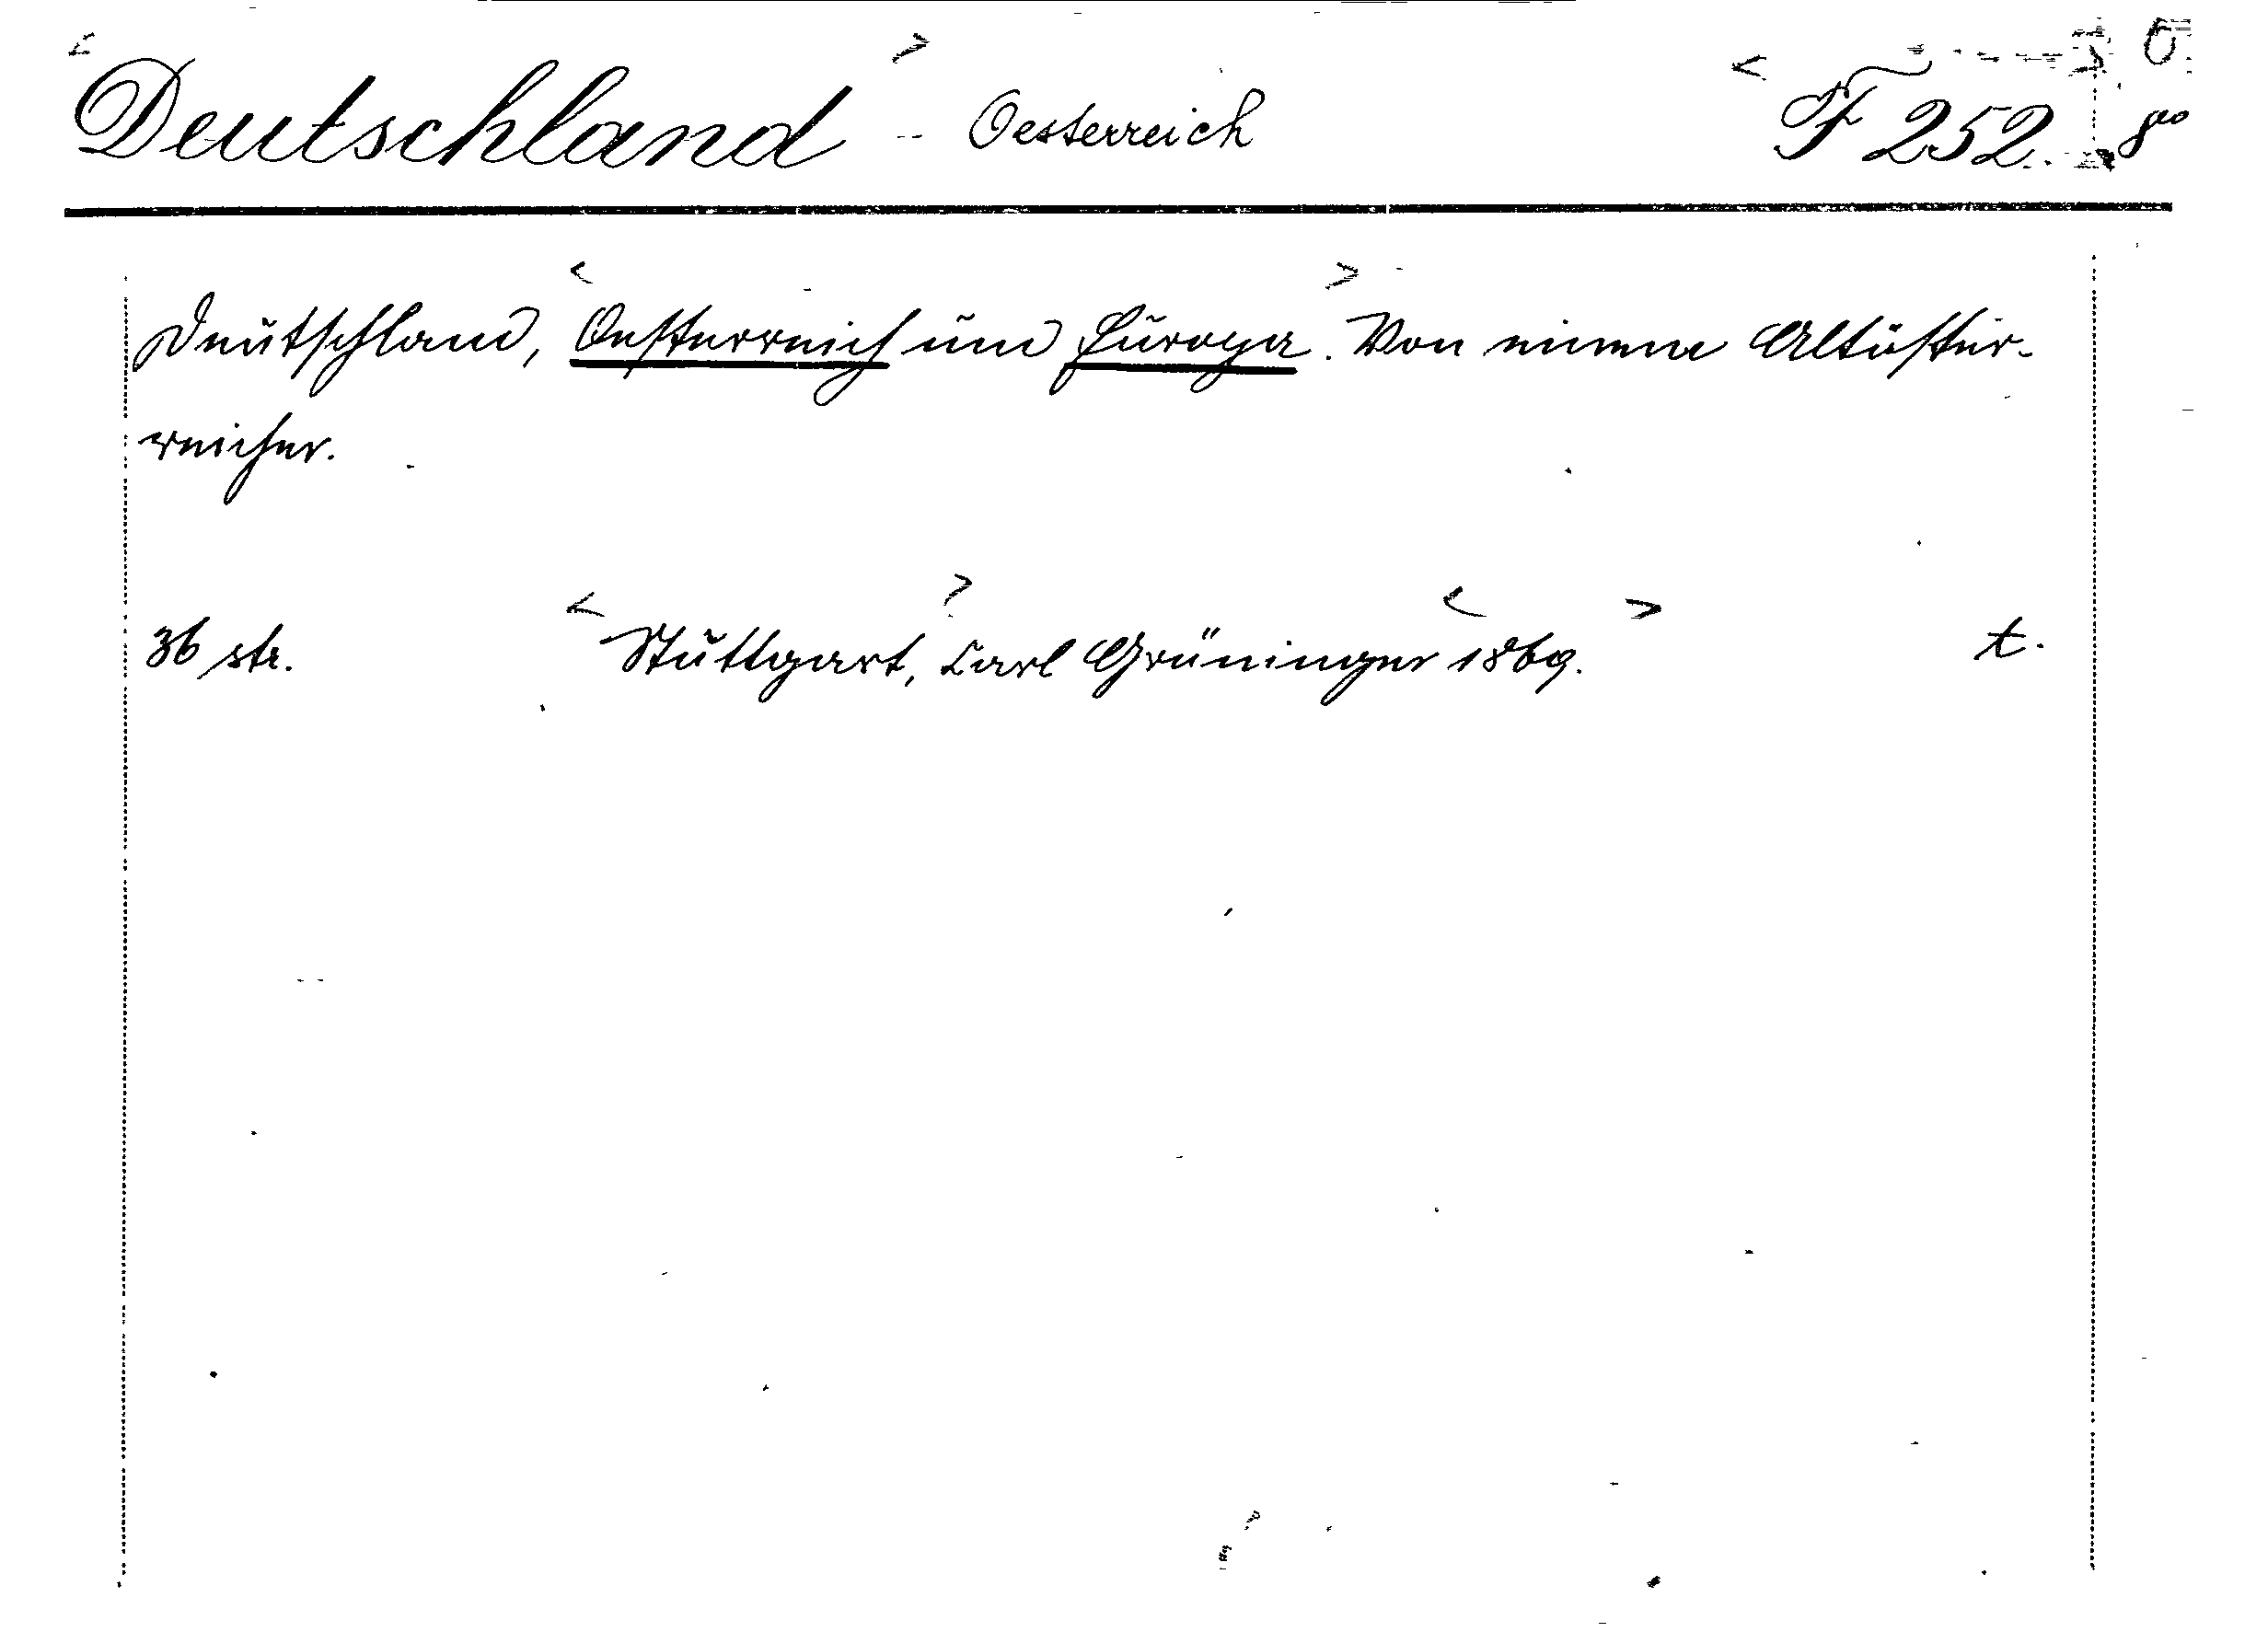 Deutschland - Oesterreich F 252. 8vo
Deutschland, Oesterreich und Europa. Von einem Altöster-
reicher.
36 str. Stuttgart, Carl Grüninger 1869. t.